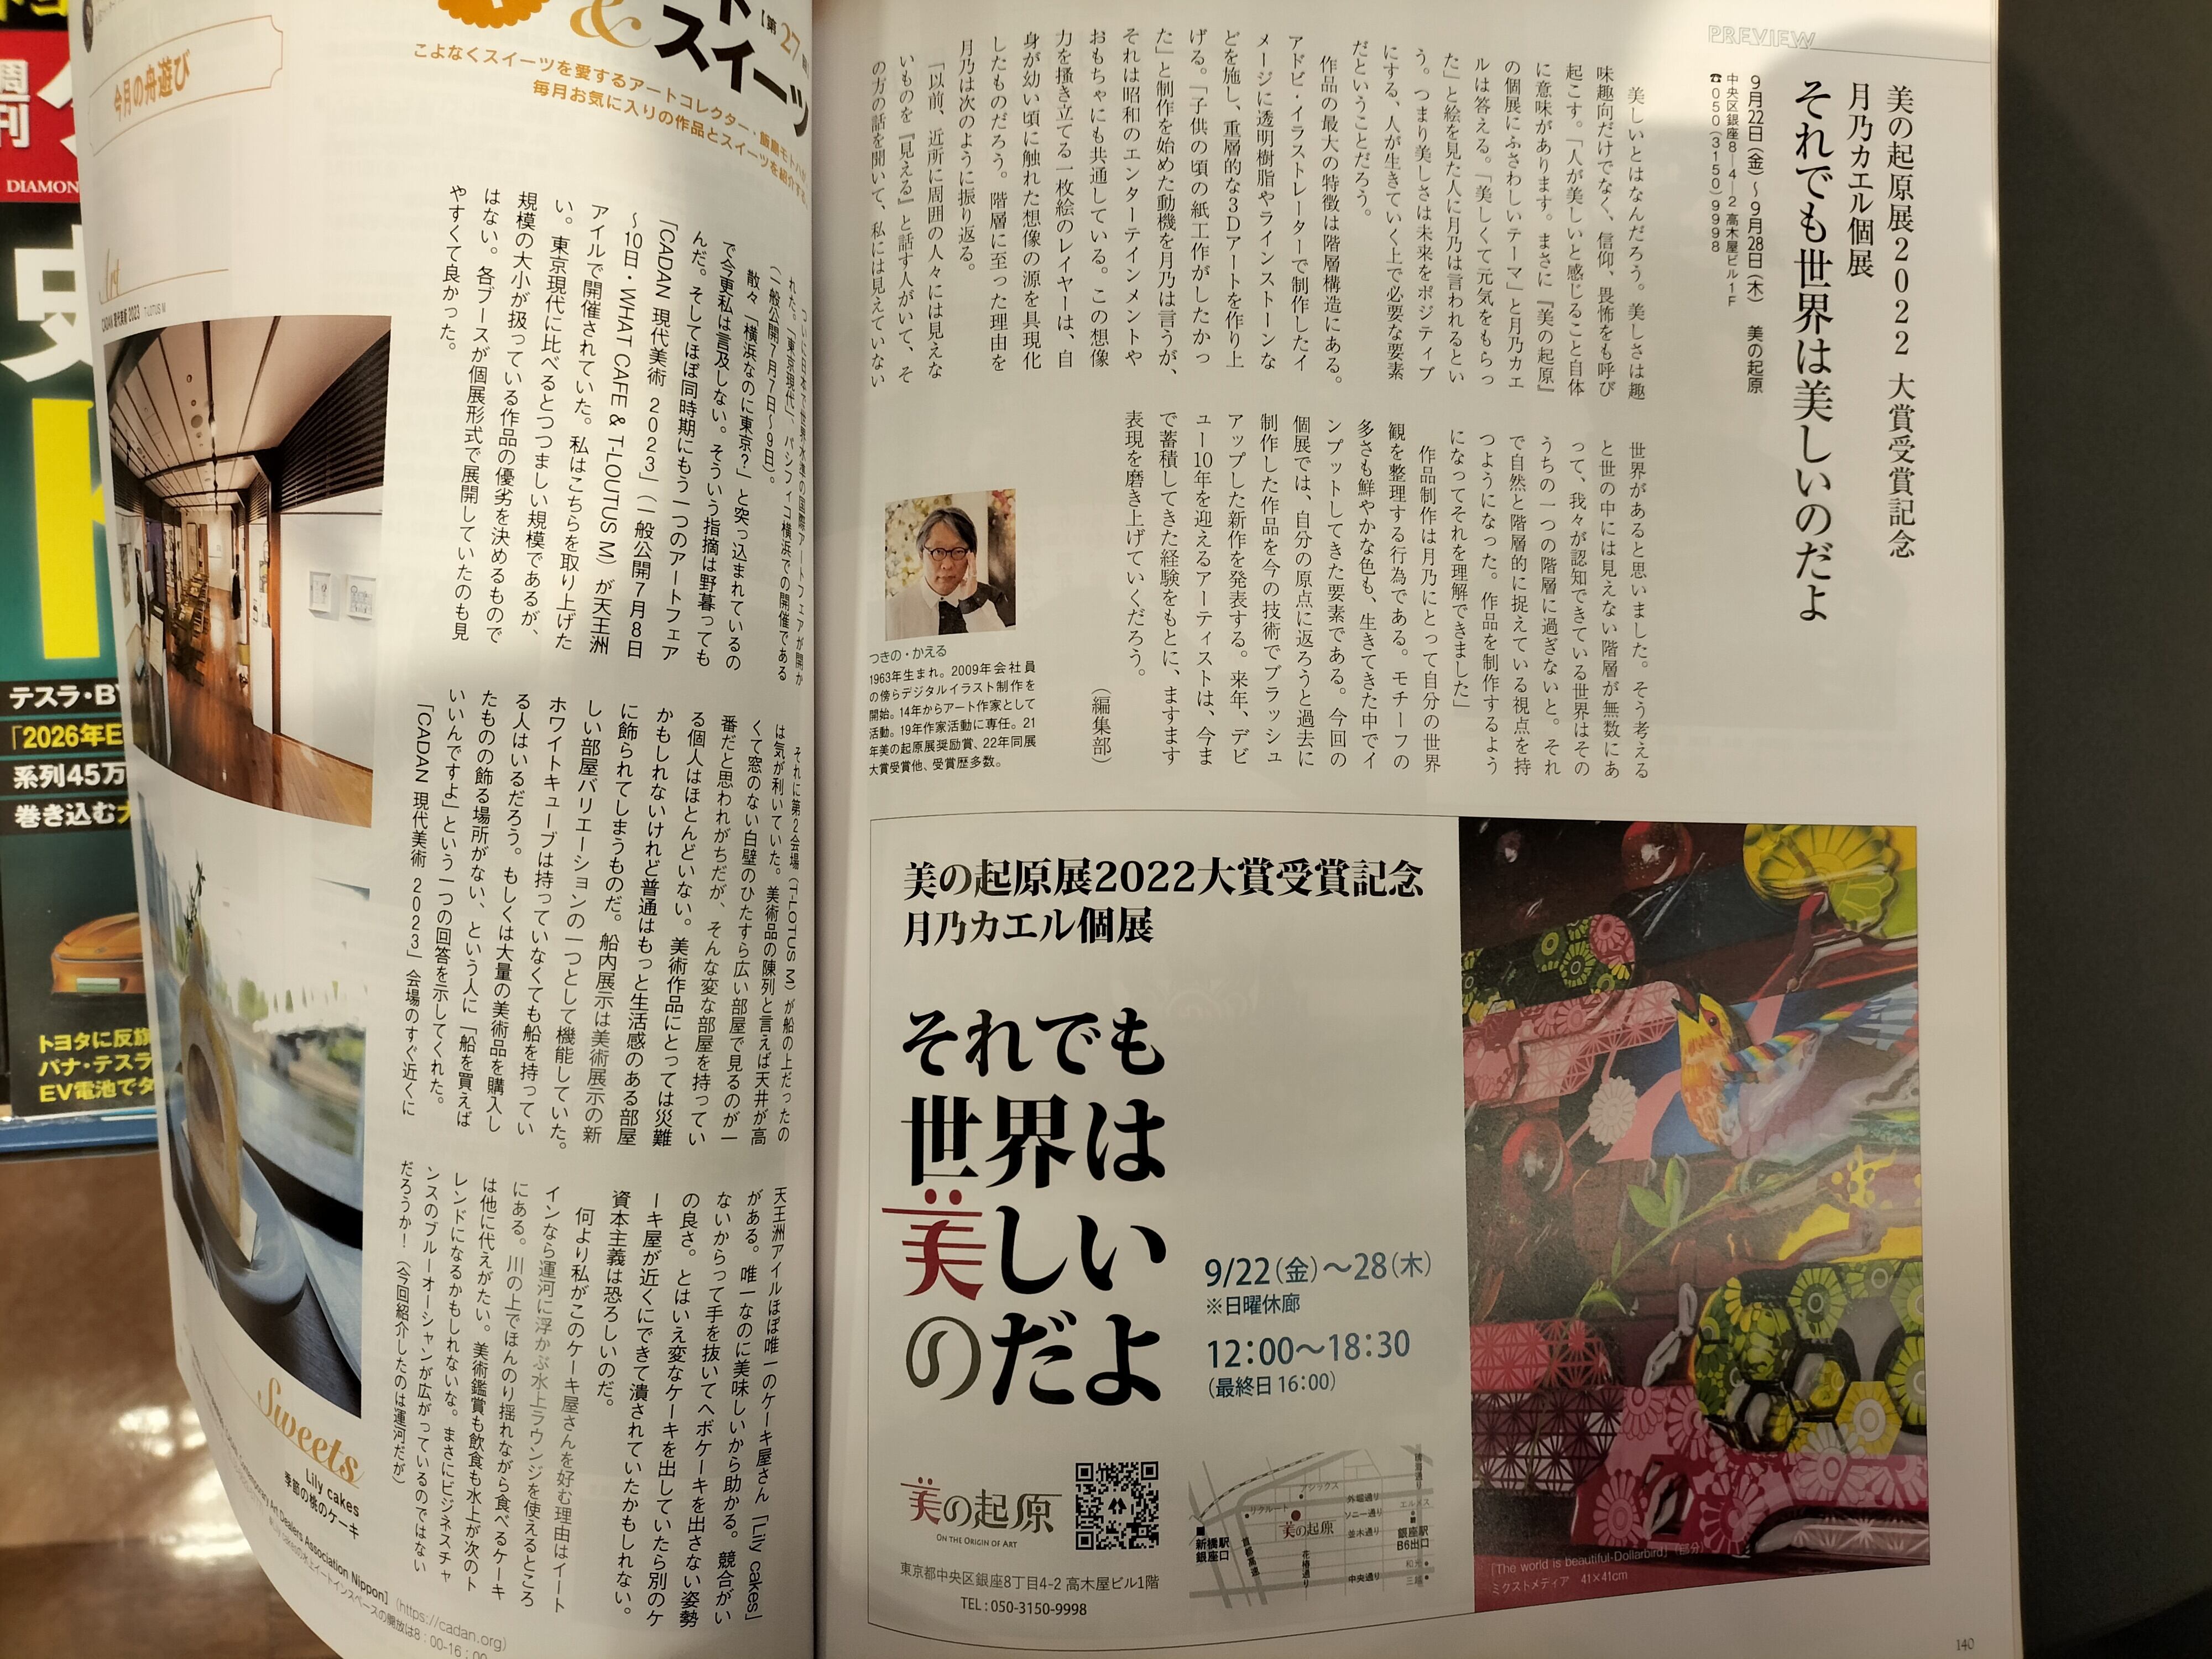 PREVIEW
美の起原展2022 大賞受賞記念
月乃カエル個展
それでも世界は美しいのだよ
9月22日(金)〜9月28日(木) 美の起原
中央区銀座8―4―2 高木屋ビル1F
☎050(3150)9998
美しいとはなんだろう。美しさは趣
味趣向だけでなく、信仰、畏怖をも呼び
起こす。「人が美しいと感じること自体
に意味があります。まさに『美の起原』
の個展にふさわしいテーマ」と月乃カエ
ルは答える。「美しくて元気をもらっ
た」と絵を見た人に月乃は言われるとい
う。つまり美しさは未来をポジティブ
にする、人が生きていく上で必要な要素
だということだろう。
作品の最大の特徴は階層構造にある。
アドビ・イラストレーターで制作したイ
メージに透明樹脂やラインストーンな
どを施し、重層的な3Dアートを作り上
げる。「子供の頃の紙工作がしたかっ
た」と制作を始めた動機を月乃は言うが、
それは昭和のエンターテインメントや
おもちゃにも共通している。この想像
力を掻き立てる一枚絵のレイヤーは、自
身が幼い頃に触れた想像の源を具現化
したものだろう。階層に至った理由を
月乃は次のように振り返る。
「以前、近所に周囲の人々には見えな
いものを『見える』と話す人がいて、そ
の方の話を聞いて、私には見えていない
世界があると思いました。そう考える
と世の中には見えない階層が無数にあ
って、我々が認知できている世界はその
うちの一つの階層に過ぎないと。それ
で自然と階層的に捉えている視点を持
つようになった。作品を制作するよう
になってそれを理解できました」
作品制作は月乃にとって自分の世界
観を整理する行為である。モチーフの
多さも鮮やかな色も、生きてきた中でイ
ンプットしてきた要素である。今回の
個展では、自分の原点に返ろうと過去に
制作した作品を今の技術でブラッシュ
アップした新作を発表する。来年、デビ
ュー10年を迎えるアーティストは、今ま
で蓄積してきた経験をもとに、ますます
表現を磨き上げていくだろう。
(編集部)
つきの・かえる
1963年生まれ。2009年会社員
の傍らデジタルイラスト制作を
開始。14年からアート作家として
活動。19年作家活動に専任。21
年美の起原展奨励賞、22年同展
大賞受賞他、受賞歴多数。
美の起原展2022大賞受賞記念
月乃カエル個展
それでも
世界は
美しい
のだよ
9/22(金)〜28(木)
※日曜休廊
12:00〜18:30
(最終日 16:00)
美の起原
ON THE ORIGIN OF ART
東京都中央区銀座8丁目4-2 高木屋ビル1階
TEL : 050-3150-9998
リクルート
外堀通り
ソニー通り
並木通り
エルメス
美の起原
新橋駅
銀座口
花椿通り
銀座駅
B6出口
和光
三越
中央通り
「The world is beautiful-Dollarbird」(部分)
ミクストメディア 41×41cm
140
&
スイーツ
こよなくスイーツを愛するアートコレクター・飯島モトハが
毎月お気に入りの作品とスイーツを紹介する。
今月の舟遊び
Art
CADAN 現代美術 2023 T-LOTUS M
ついに日本で世界水準の国際アートフェアが開か
れた。「東京現代」、パシフィコ横浜での開催である
(一般公開7月7日〜9日)。
散々「横浜なのに東京?」と突っ込まれているの
で今更私は言及しない。そういう指摘は野暮っても
んだ。そしてほぼ同時期にもう一つのアートフェア
「CADAN 現代美術 2023」(一般公開7月8日
〜10日・WHAT CAFE & T-LOUTUS M)が天王洲
アイルで開催されていた。私はこちらを取り上げた
い。東京現代に比べるとつつましい規模であるが、
規模の大小が扱っている作品の優劣を決めるもので
はない。各ブースが個展形式で展開していたのも見
やすくて良かった。
それに第2会場(T-LOTUS M)が船の上だったの
は気が利いていた。美術品の陳列と言えば天井が高
くて窓のない白壁のひたすら広い部屋で見るのが一
番だと思われがちだが、そんな変な部屋を持ってい
る個人はほとんどいない。美術作品にとっては災難
かもしれないけれど普通はもっと生活感のある部屋
に飾られてしまうものだ。船内展示は美術展示の新
しい部屋バリエーションの一つとして機能していた。
ホワイトキューブは持っていなくても船を持ってい
る人はいるだろう。もしくは大量の美術品を購入し
たものの飾る場所がない、という人に「船を買えば
いいんですよ」という一つの回答を示してくれた。
「CADAN 現代美術 2023」会場のすぐ近くに
天王洲アイルほぼ唯一のケーキ屋さん「Lily cakes」
がある。唯一なのに美味しいから助かる。競合がい
ないからって手を抜いてヘボケーキを出さない姿勢
の良さ。とはいえ変なケーキを出していたら別のケ
ーキ屋が近くにできて潰されていたかもしれない。
資本主義は恐ろしいのだ。
何より私がこのケーキ屋さんを好む理由はイート
インなら運河に浮かぶ水上ラウンジを使えるところ
にある。川の上でほんのり揺れながら食べるケーキ
は他に代えがたい。美術鑑賞も飲食も水上が次のト
レンドになるかもしれないな。まさにビジネスチャ
ンスのブルーオーシャンが広がっているのではない
だろうか!(今回紹介したのは運河だが)
Sweets
Lily cakes
季節の桃のケーキ
(https://cadan.org)
DIAMON
テスラ・BY
「2026年E
系列45万
巻き込む
トヨタに反旗
パナ・テスラ
EV電池でタ